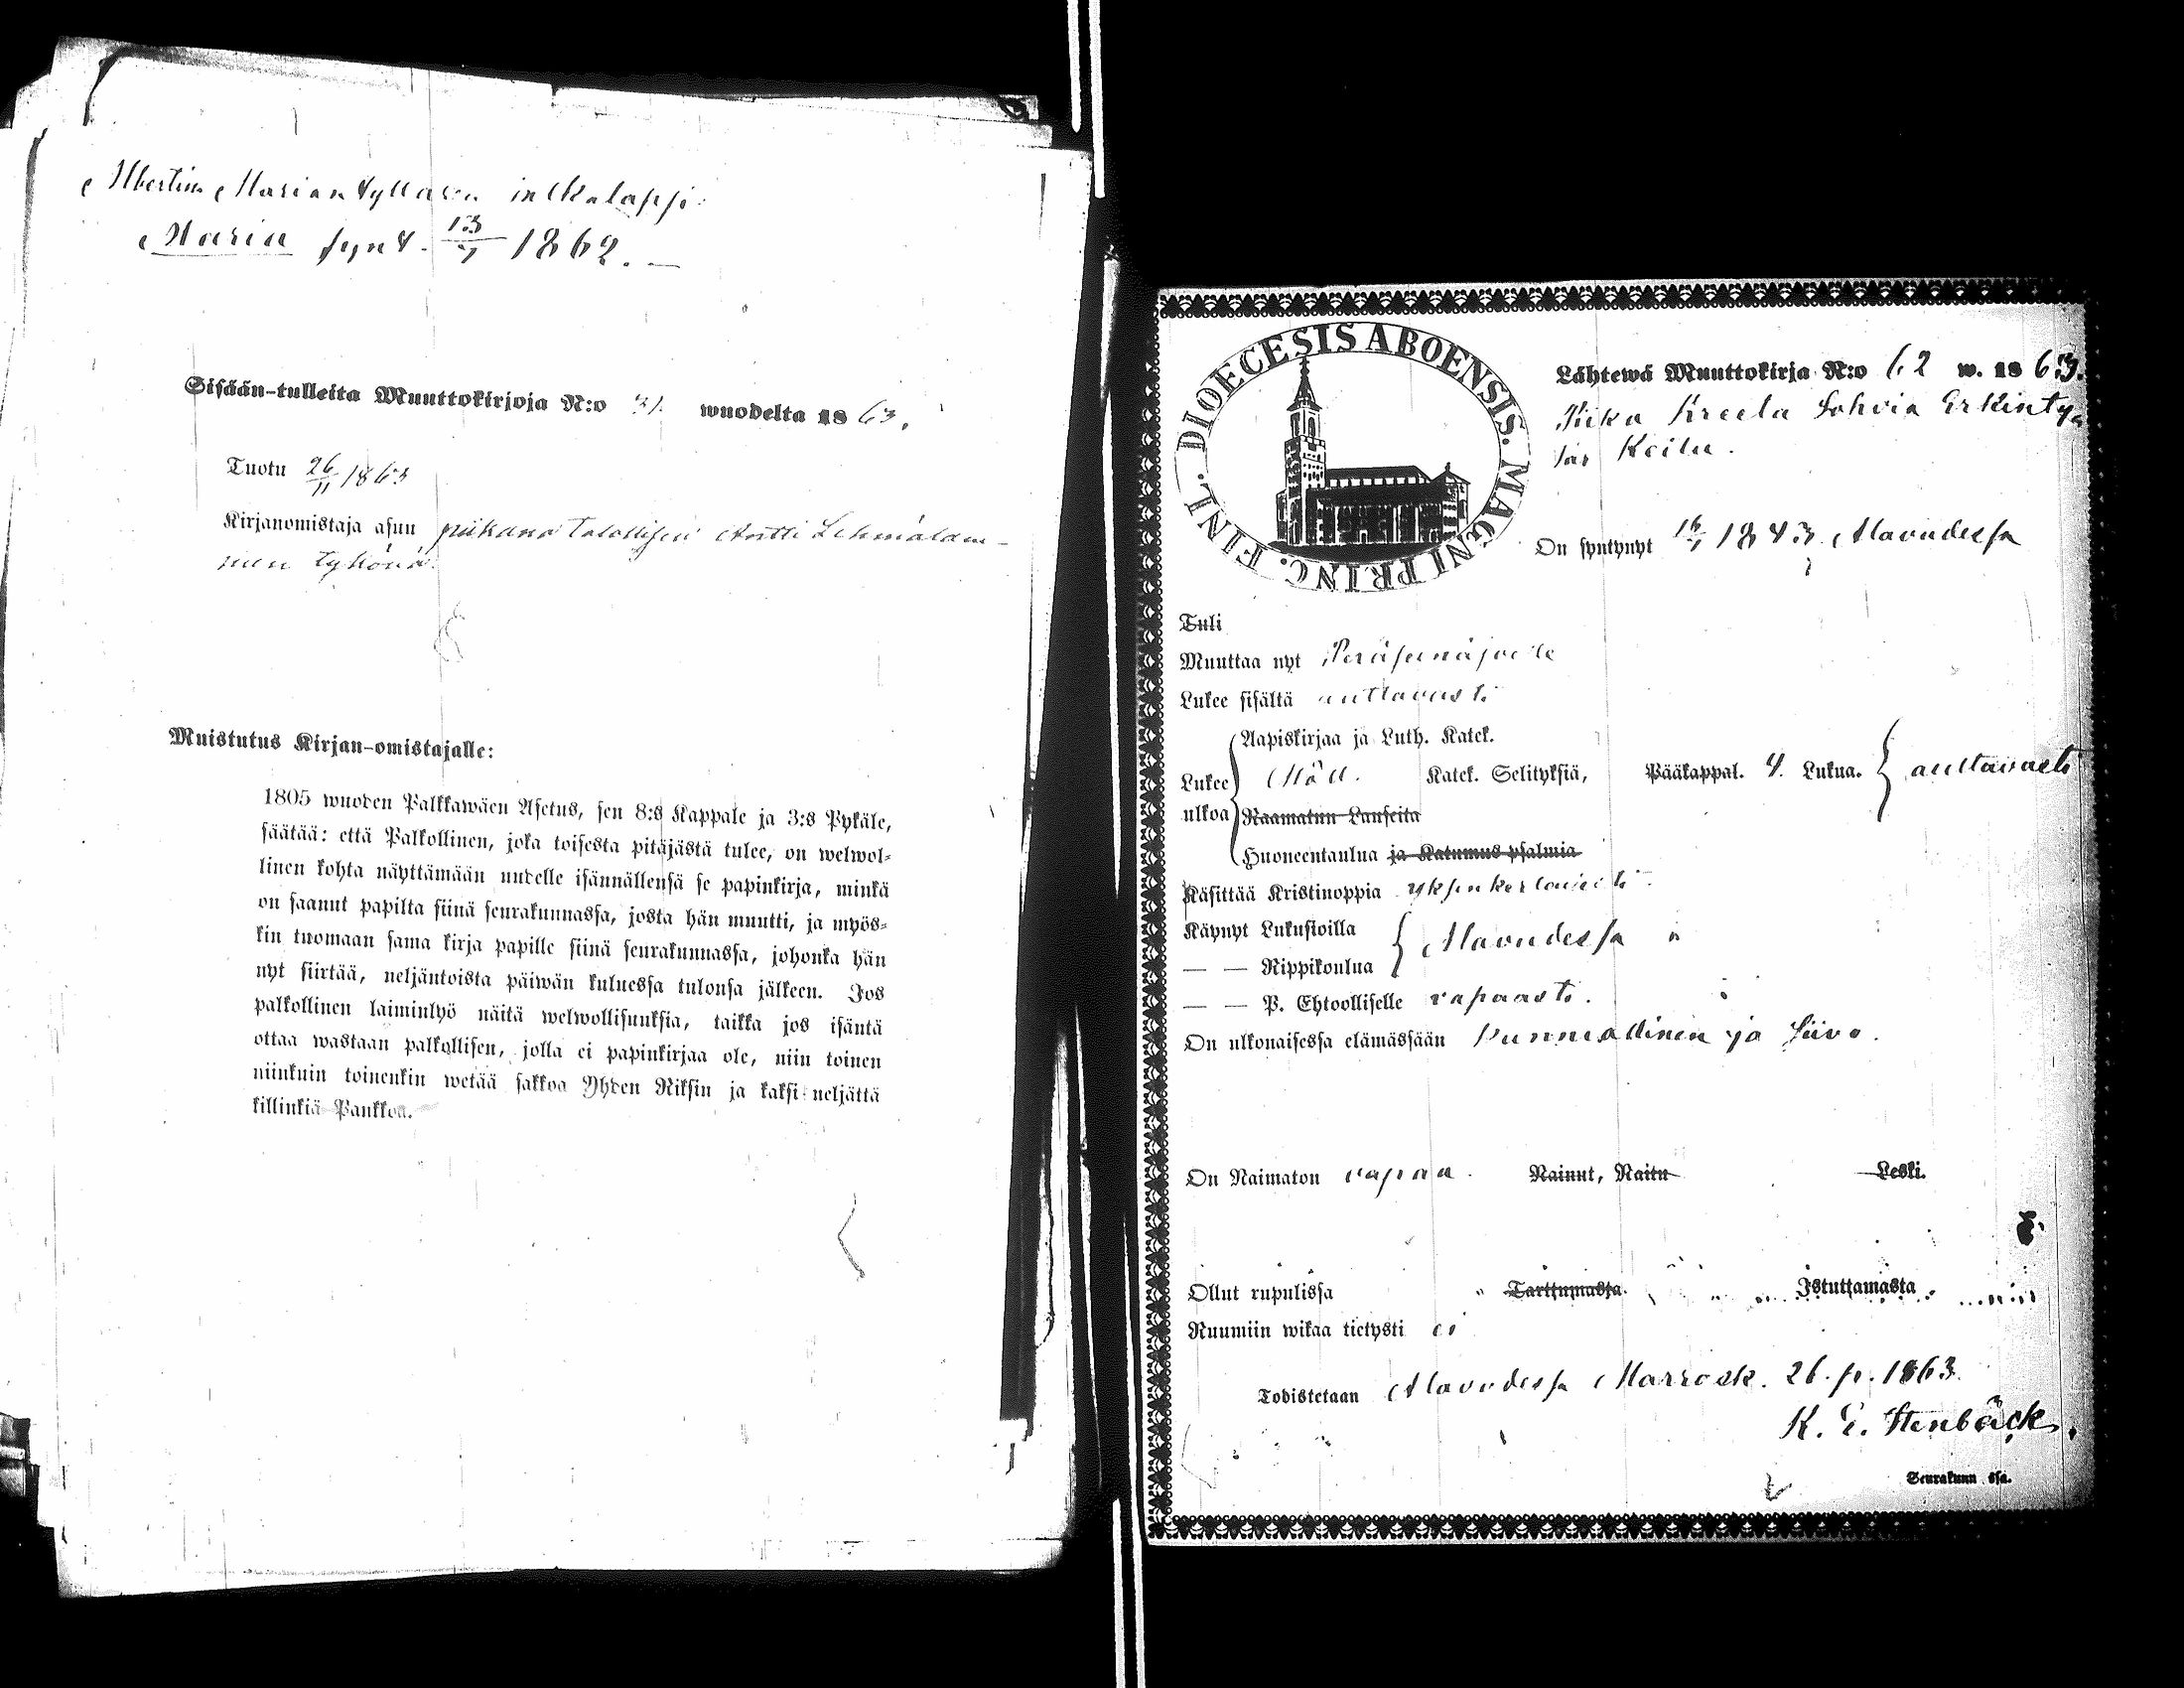 Albertina Marian tyttären inkalappi
Maria synt. 13/7 1862. —
Sisään-tulleita Muuttokirjoja N:o 31. wuodelta 1863.
Tuotu 26/11 1863
Kirjanomistaja asuu piikana talollisen Antti
nen tykönä.
Muistutus Kirjan-omistajalle:
1805 wuoden Palkkawäen Asetus, sen 8:s Kappale ja 3:s Pykäle,
säätää: että Palkollinen, joka toisesta pitäjästä tulee, on welwol-
linen kohta näyttämään uudelle isännällensä se papinkirja, minkä
on saanut papilta siinä seurakunnassa, josta hän muutti, ja myös-
kin tuomaan sama kirja papille siinä seurakunnassa, johonka hän
nyt siirtää, neljäntoista päiwän kuluessa tulonsa jälkeen. Jos
palkollinen laiminlyö näitä welwollisuuksia, taikka jos isäntä
ottaa wastaan palkollisen, jolla ei papinkirjaa ole, niin toinen
niinkuin toinenkin wetää sakkoa Yhden Riksin ja kaksi neljättä
killinkiä Pankkoa.
DIOECESIS ABOENSIS. MAGNI PRINC. FINL.
Lähtewä Muuttokirja N:o 62 w. 1863.
Piika Kreeta Sohvia Erkinty-
tär Keilu.
On syntynyt 1843 Alavudessa
Tuli
Muuttaa nyt Peräseinäjoelle
Lukee sisältä auttavasti
Aapiskirjaa ja Luth. Katek.
Lukee Möll. Katek. Selityksiä, Pääkappal. 4. Lukua. auttavasti
ulkoa Raamatun Lauseita
Huoneentaulua ja Katumus-psalmia
Käsittää Kristinoppia yksinkertaisesti
Käynyt Lukusioilla Alavudessa
— — Rippikoulua
— — P. Ehtoolliselle vapaasti.
On ulkonaisessa elämässään kunniallinen ja siivo.
On Naimaton vapaa. Nainut, Naitu Leski.
Ollut rupulissa Tarttumasta. Istuttamasta
Ruumiin wikaa tietysti ei
Todistetaan Alavudessa Marrask. 26. p. 1863.
K. E. Stenbäck.
Seurakunn ssa.